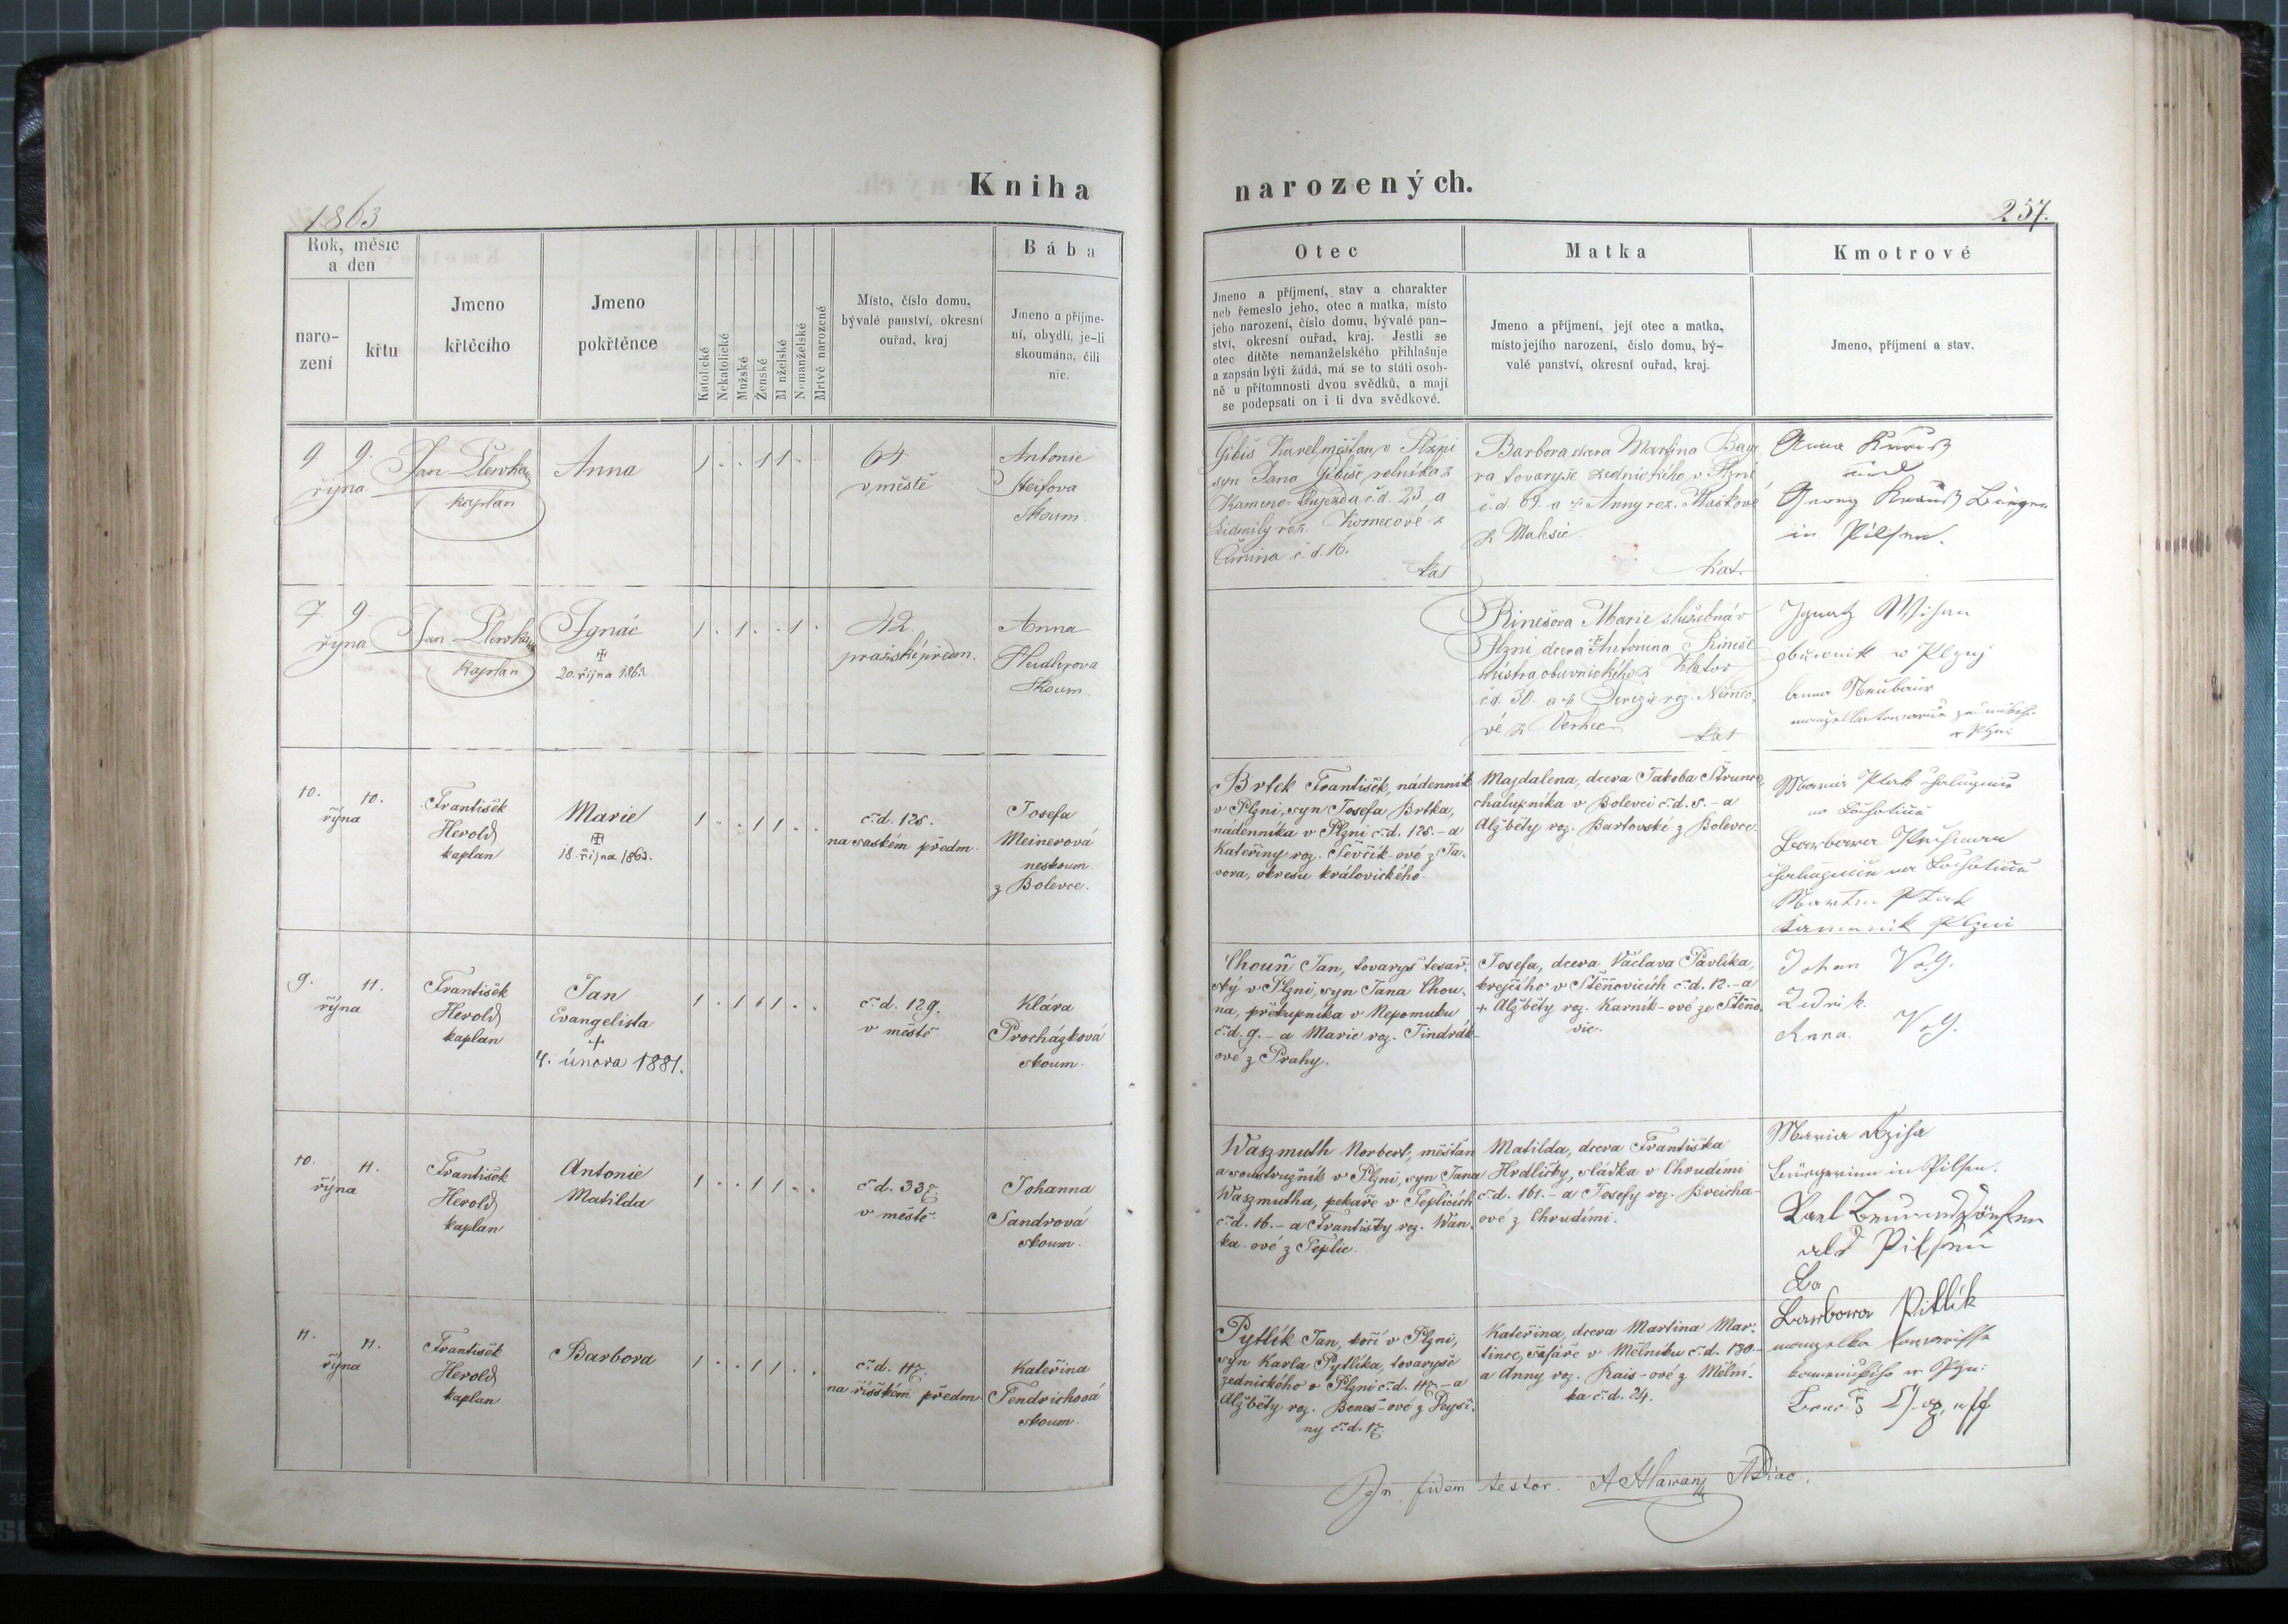 Kniha
narozených.
1863
257.
Rok, měsíc
a den
naro-
zení
křtu
Jmeno
křtěcího
Jmeno
pokřtěnce
Katolické
Nekatolické
Mužské
Ženské
Manželské
Nemanželské
Mrtvě narozené
Místo, číslo domu,
bývalé panství, okresní
ouřad, kraj
Bába
Jmeno a příjme-
ní, obydlí, je-li
skoumána, čili
nic.
Otec
Jmeno a příjmení, stav a charakter
neb řemeslo jeho, otec a matka, místo
jeho narození, číslo domu, bývalé pan-
ství, okresní ouřad, kraj. Jestli se
otec dítěte nemanželského přihlašuje
a zapsán býti žádá, má se to státi osob-
ně u přítomnosti dvou svědků, a mají
se podepsati on i ti dva svědkové.
Matka
Jmeno a příjmení, její otec a matka,
místo jejího narození, číslo domu, bý-
valé panství, okresní ouřad, kraj.
Kmotrové
Jmeno, příjmení a stav.
9 9.
října
Jan Plewka
kaplan
Anna
1 . . 1 1 . .
64
v městě
Antonie
Steifova
skoum.
Gibiš Karel, měšťan v Plzni
syn Jana Gibiše rolníka z
Kameno Újezda č.d. 23 a
Lidmily roz.
č.d. 16.
kat
Barbora dcera Martina
ra tovaryše zednického v Plzni
č.d. 69. a Anny roz. Maškové
z
kat.
Anna
und
Georg Bürger
in Pilsen.
7 9.
října
Jan Plewka
kaplan
Ignác
20. října 1863.
1 . 1 . . 1 .
42.
pražské předm.
Anna
Heidlerova
skoum.
Rinešova Marie služebná v
Plzni dcera Antonina Rineše
mistra obuvnického z Klatov
č.d. 30. a Terezie roz. Němco-
vé z
kat
Ignatz
obuwnik w Plznj
Anna Neubauer
manzelka
w Plzni
10. 10.
října
František
Herold
kaplan
Marie
18. října 1863.
1 . . 1 1 . .
č.d. 125.
na saském předm.
Josefa
Meinerová
neskoum.
z Bolevce.
Brtek František, nádenník
v Plzni, syn Josefa Brtka,
nádenníka v Plzni č.d. 125. - a
Kateřiny roz. Ševčík-ové z Ja-
vora, okresu královického.
Majdalena, dcera Jakoba Štrunce,
chalupníka v Bolevci č.d. 5. - a
Alžběty roz. Bartovské z Bolevce.
Maria Ptak
Barbara
Martin Ptak
Plzni
9. 11.
října
František
Herold
kaplan
Jan
Evangelista
+
4. února 1881.
1 . 1 . 1 . .
č.d. 129.
v městě
Klára
Procházková
skoum.
Chouň Jan, tovaryš tesař-
ský v Plzni, syn Jana Chou-
na, překupníka v Nepomuku
č.d. 9. - a Marie roz. Jindrák-
ové z Prahy.
Josefa, dcera Václava Pavlíka,
krejčího v Štěnovicích č.d. 12. - a
+ Alžběty roz. Karník-ové ze Štěno-
vic.
Johan
Anna.
10. 11.
října
František
Herold
kaplan
Antonie
Matilda
1 . . 1 1 . .
č.d. 337.
v městě.
Johanna
Sandrová
skoum.
Waszmuth Norbert, měšťan
a soustružník v Plzni, syn Jana
Waszmutha, pekaře v Teplicích
č.d. 16. - a Františky roz. Wan-
ka-ové z Teplic.
Matilda, dcera Františka
Hrdličky, sládka v Chrudimi
č.d. 161. - a Josefy roz. Breicha-
ové z Chrudimi.
Maria
Bürgerinn in Pilsen.
Karl
Pilsen
Ba
11. 11.
října
František
Herold
kaplan
Barbora
1 . . 1 1 . .
č.d. 117.
na říšském předm.
Kateřina
Fendrichová
skoum.
Pytlík Jan, kočí v Plzni,
syn Karla Pytlíka, tovaryše
zednického v Plzni č.d. 117. - a
Alžběty roz. Beneš-ové z Deyši-
ny č.d. 17.
Kateřina, dcera Martina Mar-
tince, šafáře v Mělníku č.d. 130. -
a Anny roz. Rais-ové z Mělní-
ka č.d. 24.
Barbora Pitlik
manzelka
w Plzni
In fidem testor.